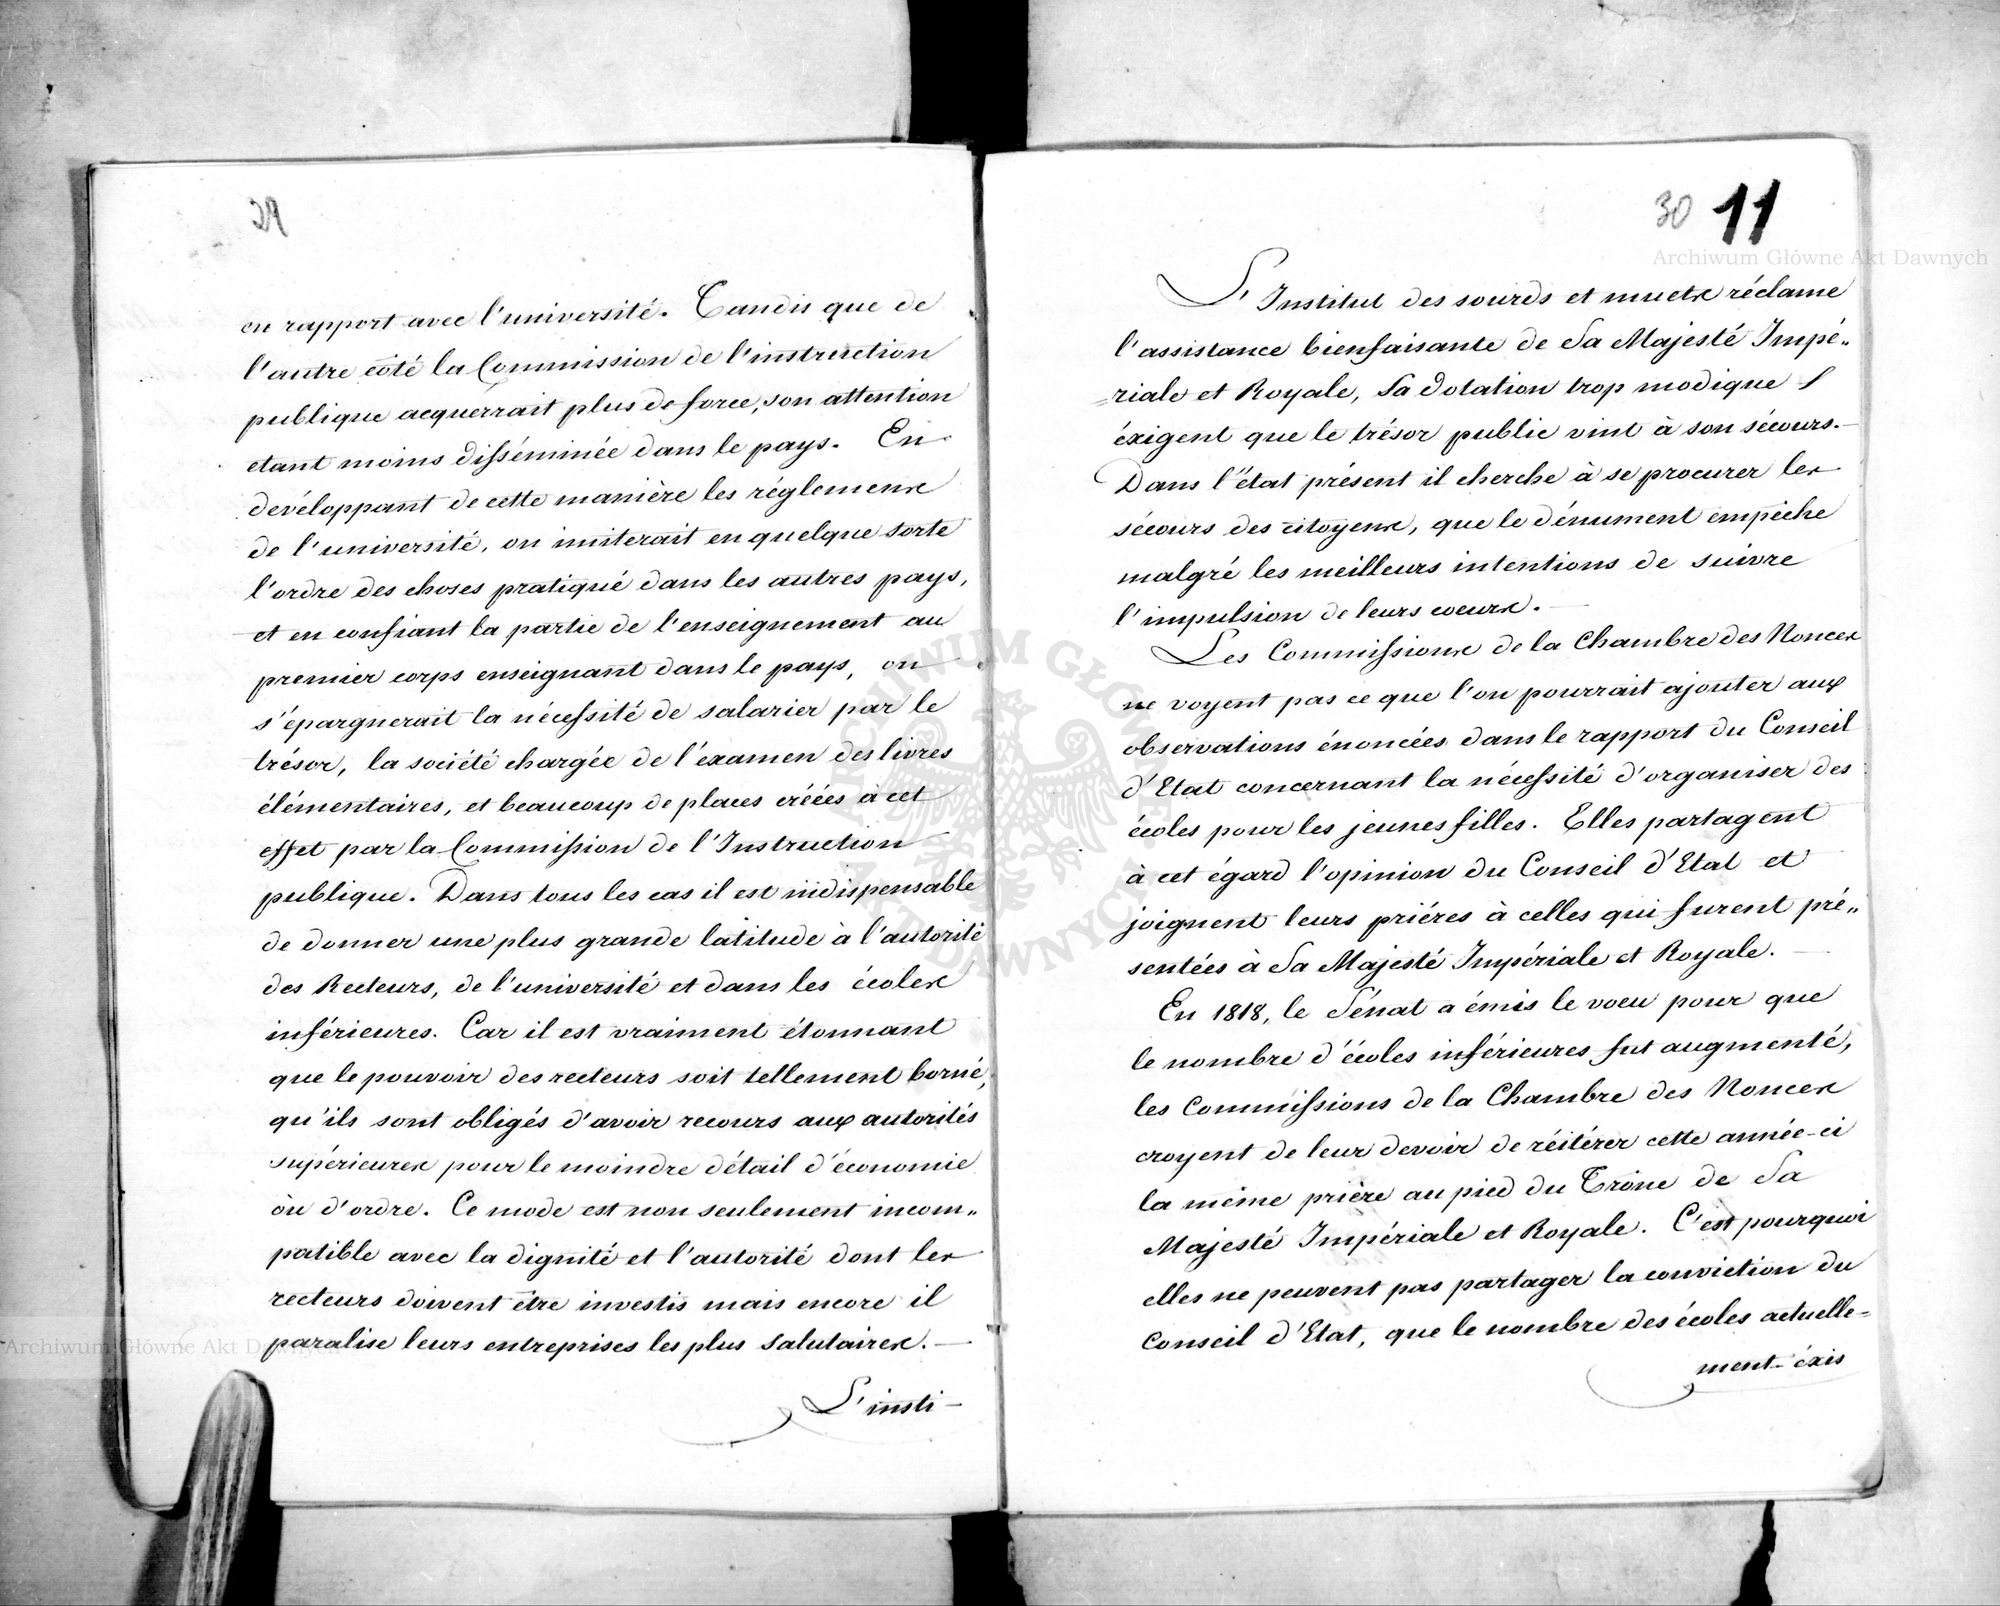 29
en rapport avec l'université. Tandis que de
l'autre côté la Commission de l'instruction
publique acquerrait plus de force, son attention
etant moins disséminée dans le pays. En
dévéloppant de cette manière les réglemens
de l'université, on imiterait en quelque sorte
l'ordre des choses pratiqué dans les autres pays,
et en confiant la partie de l'enseignement au
premier corps enseignant dans le pays, on
s'épargnerait la nécessité de salarier par le
trésor, la société chargée de l'éxamen des livres
élémentaires, et beaucoup de places créées à cet
effet par la Commission de l'Instruction
publique. Dans tous les cas il est indispensable
de donner une plus grande latitude à l'autorité
des Recteurs, de l'université et dans les écoles
inférieures. Car il est vraiment étonnant
que le pouvoir des recteurs soit tellement borné,
qu'ils sont obligés d'avoir recours aux autorités
supérieures pour le moindre détail d'économie
où d'ordre. Ce mode est non seulement incom„
patible avec la dignité et l'autorité dont les
recteurs doivent être investis mais encore il
paralise leurs entreprises les plus salutaires. —
L'insti —
30 11
L'Institut des sourds et muets réclame
l'assistance bienfaisante de Sa Majesté Impé„
riale et Royale, Sa dotation trop modique
éxigent que le trésor public vint à son sécours. —
Dans l'état présent il cherche à se procurer les
sécours des citoyens, que le dénument empêche
malgré les meilleurs intentions de suivre
l'impulsion de leurs coeurs. —
Les Commissions de la Chambre des Nonces
ne voyent pas ce que l'on pourrait ajouter aux
observations énoncées dans le rapport du Conseil
d'Etat concernant la nécessité d'organiser des
écoles pour les jeunes filles. Elles partagent
à cet égard l'opinion du Conseil d'Etat et
joignent leurs priéres à celles qui furent pré„
sentées à Sa Majesté Impériale et Royale. —
En 1818, le Sénat a émis le voeu pour que
le nombre d'écoles inférieures fut augmenté,
les Commissions de la Chambre des Nonces
croyent de leur devoir de réitérer cette année-ci
la même prière au pied du Trône de Sa
Majesté Impériale et Royale. C'est pourquoi
elles ne peuvent pas partager la conviction du
Conseil d'Etat, que le nombre des écoles actuelle=
ment éxis
Archiwum Główne Akt Dawnych
Archiwum Główne Akt Dawnych
ARCHIWUM GŁÓWNE AKT DAWNYCH